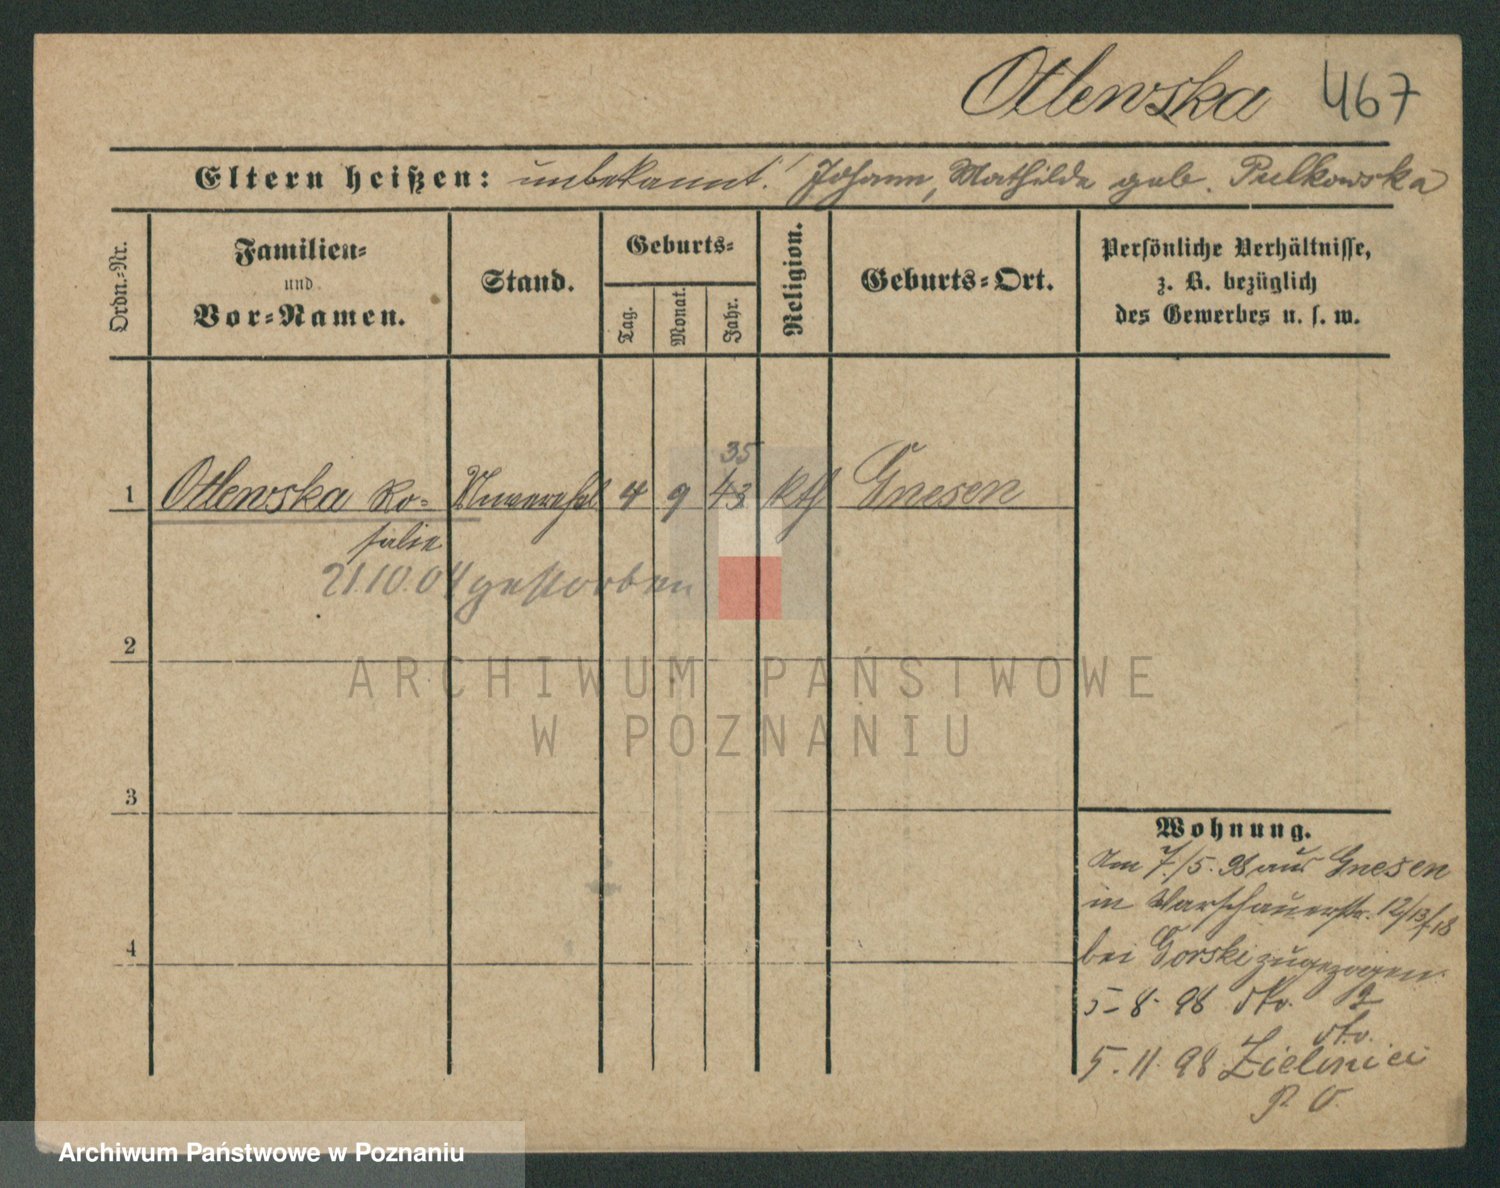 Otlewska 467
Eltern heißen: unbekannt! Johann, Mathilde geb. Pulkowska
Ordn.-Nr.
Familien-
und
Vor-Namen.
Stand.
Geburts-
Tag.
Monat.
Jahr.
Religion.
Geburts-Ort.
Persönliche Verhältnisse,
z. B. bezüglich
des Gewerbes u. s. w.
35
1 Otlewska Ro- Unverehel 4 9 43 kth Gnesen
salie
21.10.04 gestorben
2
ARCHIWUM PAŃSTWOWE
W POZNANIU
3
Wohnung.
Am 7./5. 98 aus Gnesen
in Warschauerstr. 12/13/18
4
bei Gorski zugezogen.
5-8-98 2
5.11.98
Archiwum Państwowe w Poznaniu